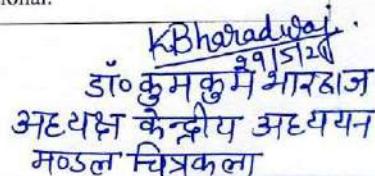 ional.
KBharadwaj.
29/5/21
डॉ० कुमकुम भारद्वाज
अध्यक्ष केन्द्रीय अध्ययन
मण्डल चित्रकला